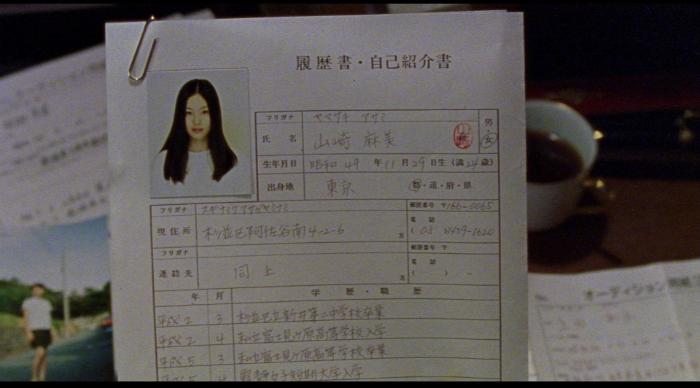 履歴書・自己紹介書
フリガナ ヤマザキ アサミ
氏名 山崎 麻美
男・女
生年月日 昭和49年11月29日生(満24歳)
出身地 東京 都・道・府・県
フリガナ スギナミクアサガヤミナミ
郵便番号 〒166-0065
現住所 杉並区阿佐谷南4-2-6 方
電話 (03)
フリガナ
郵便番号 〒
連絡先 同上 方
電話 ( ) -
年 月 学歴・職歴
平成2 3 杉並区立 第二中学校卒業
平成2 4 私立富士見ヶ原高等学校入学
平成5 3 私立富士見ヶ原高等学校卒業
4 女子短期大学入学
オーディション